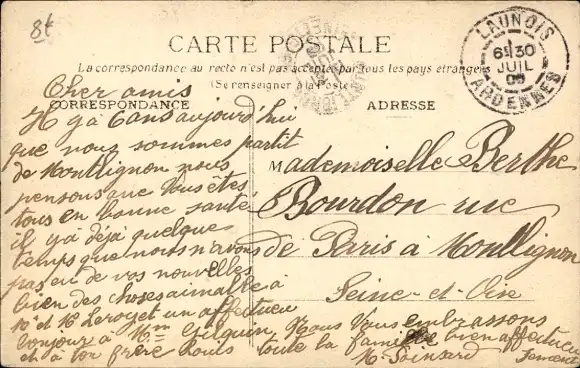 8t
CARTE POSTALE
La correspondance au recto n'est pas acceptée par tous les pays étrangers
(Se renseigner à la Poste)
LAUNOIS
6 30
JUIL
09
ARDENNES
CORRESPONDANCE
ADRESSE
Cher amis
Il y a 6 ans aujourd'hui
que nous sommes partit
de Montlignon nous
pensons que Vous êtes
tous en bonne santé
il y a déjà quelque
temps que nous n'avons
pas eu de vos nouvelles
bien des choses aimable à
Mr et Me Leroy et un affectueu
bonjour à Mme Gilquin,
et à ton frère Louis
Nous Vous embrassons
toute la famille bien affectueu
sement
Mademoiselle Berthe
Bourdon rue
de Paris à Montlignon
Seine-et-Oise